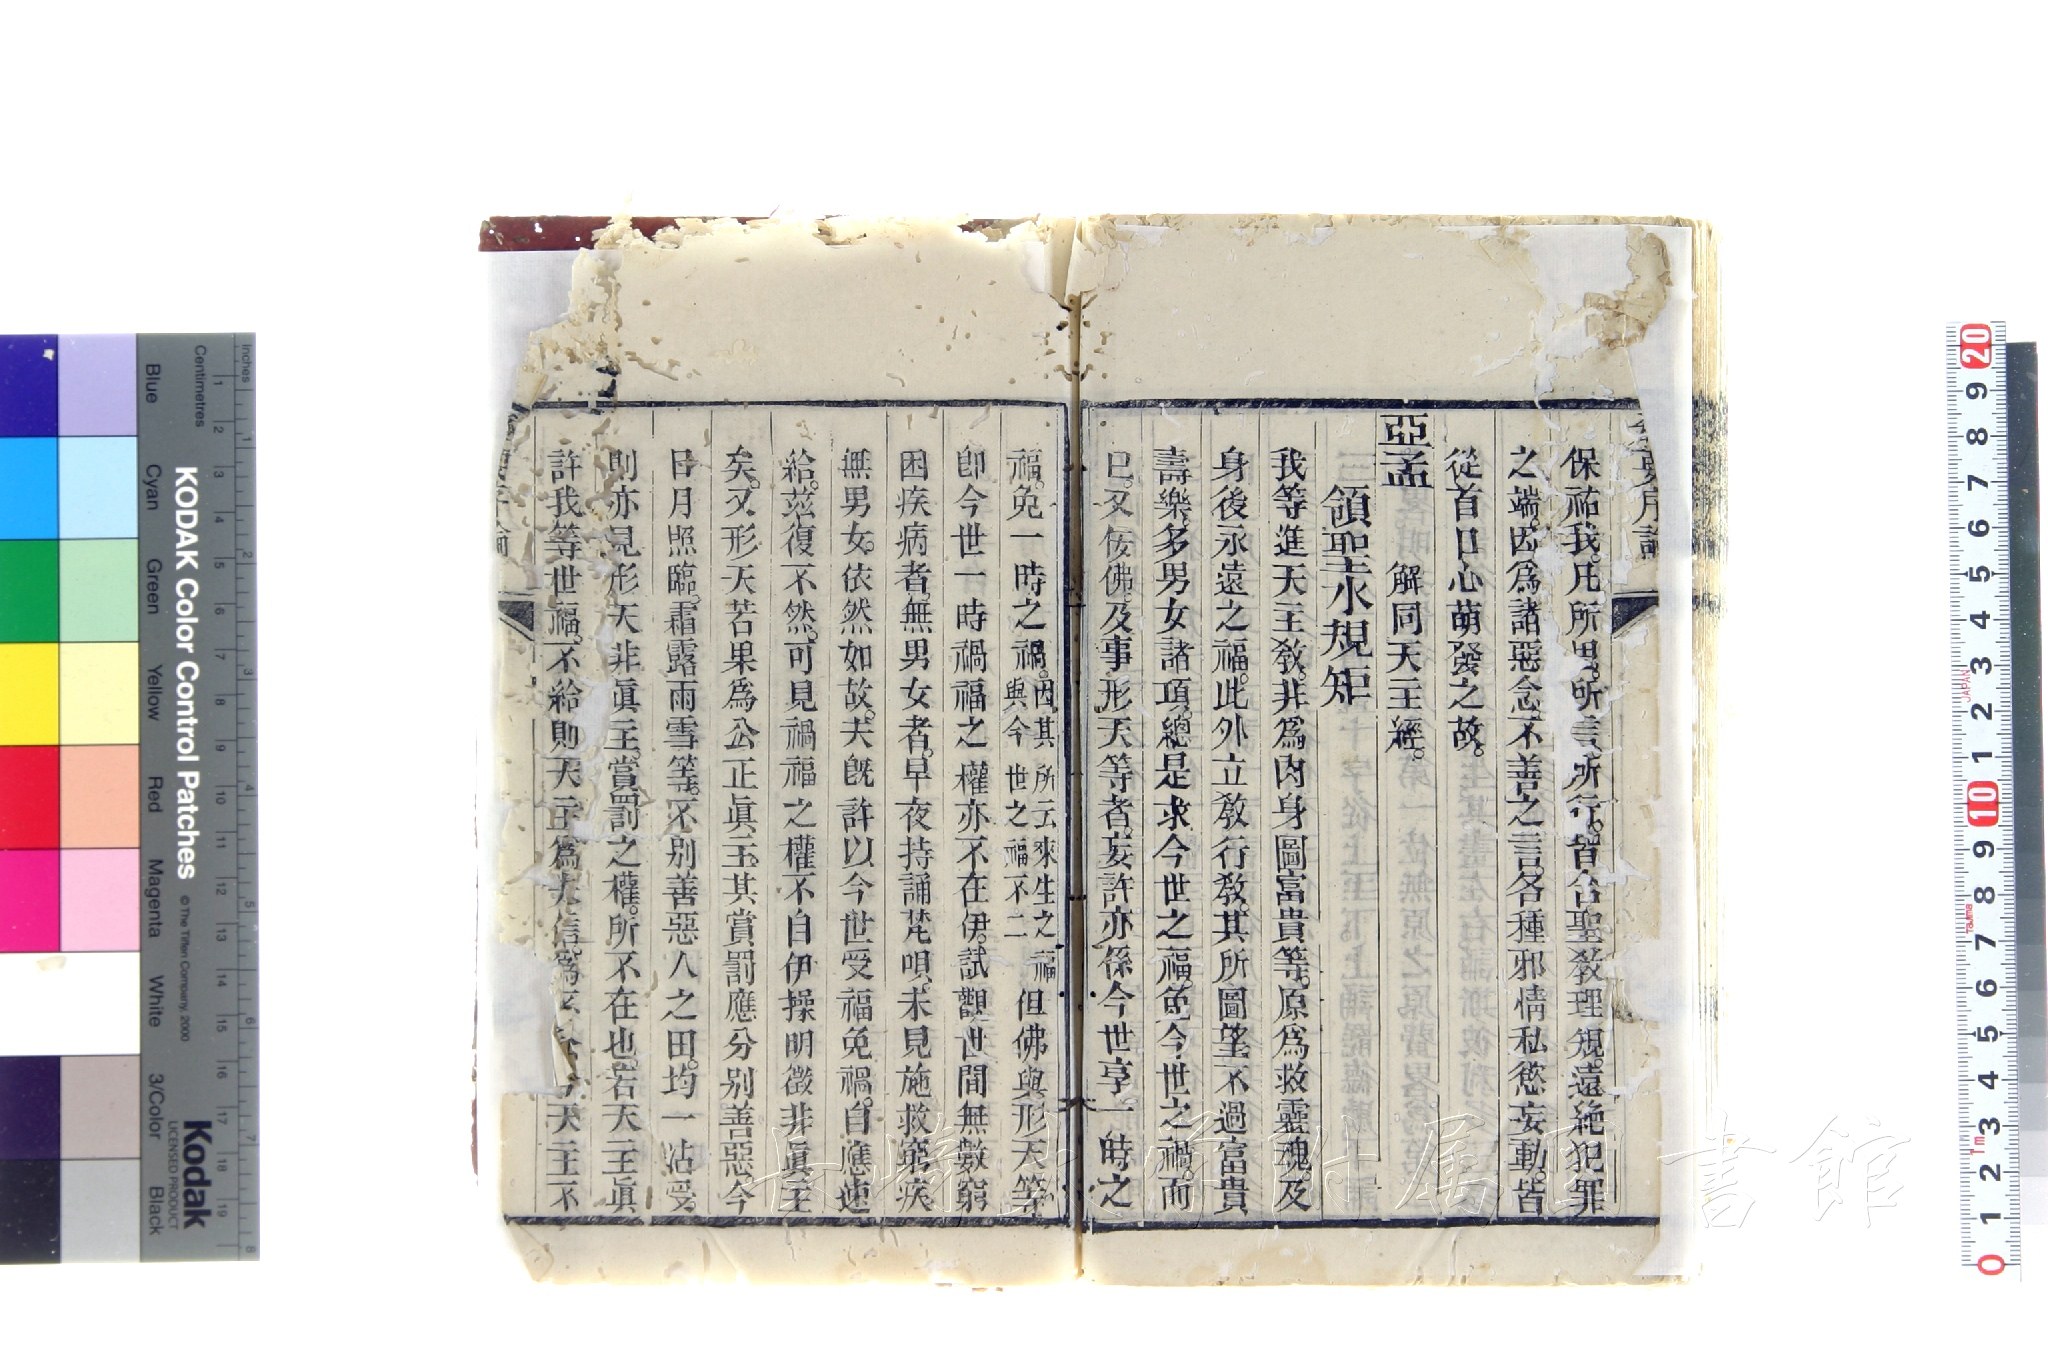 保祐我。凡所思。所言。所行。皆合聖敎理規。遠絶犯罪
之端。因爲諸惡念。不善之言。各種邪情私慾妄動。皆
從首口心萌發之故。
亞孟 解同天主經。
領聖水規矩
我等進天主敎。非爲肉身圖富貴等。原爲救靈魂。及
身後永遠之福。此外立敎行敎。其所圖望不過富貴
壽樂。多男女諸項。總是求今世之福。免今世之禍。而
已。又佞佛。及事形天等者。妄許亦係今世享一時之
福。免一時之禍。因其所云來生之福與今世之福不二但佛與形天等
卽今世一時禍福之權亦不在伊。試觀世間無數窮
困疾病者。無男女者。早夜持誦梵唄。未見施救窮疾
無男女。依然如故。夫旣許以今世受福免禍。自應速
給。茲復不然。可見禍福之權不自伊操明徵非眞主
矣。又形天若果爲公正眞主。其賞罰應分别善惡。今
日月照臨。霜露雨雪等。不别善惡人之田。均一沾受。
則亦見形天非眞主。賞罰之權。所不在也。若天主眞
許我等世福。不給則天主爲失信。爲 天主不
KODAK Color Control Patches
© The Tiffen Company, 2000
Kodak
LICENSED PRODUCT
Inches
Centimetres
Blue
Cyan
Green
Yellow
Red
Magenta
White
3/Color
Black
属
書館
JAPAN
Tajima
1m
20
9
8
7
6
5
4
3
2
1
10
9
8
7
6
5
4
3
2
1
0